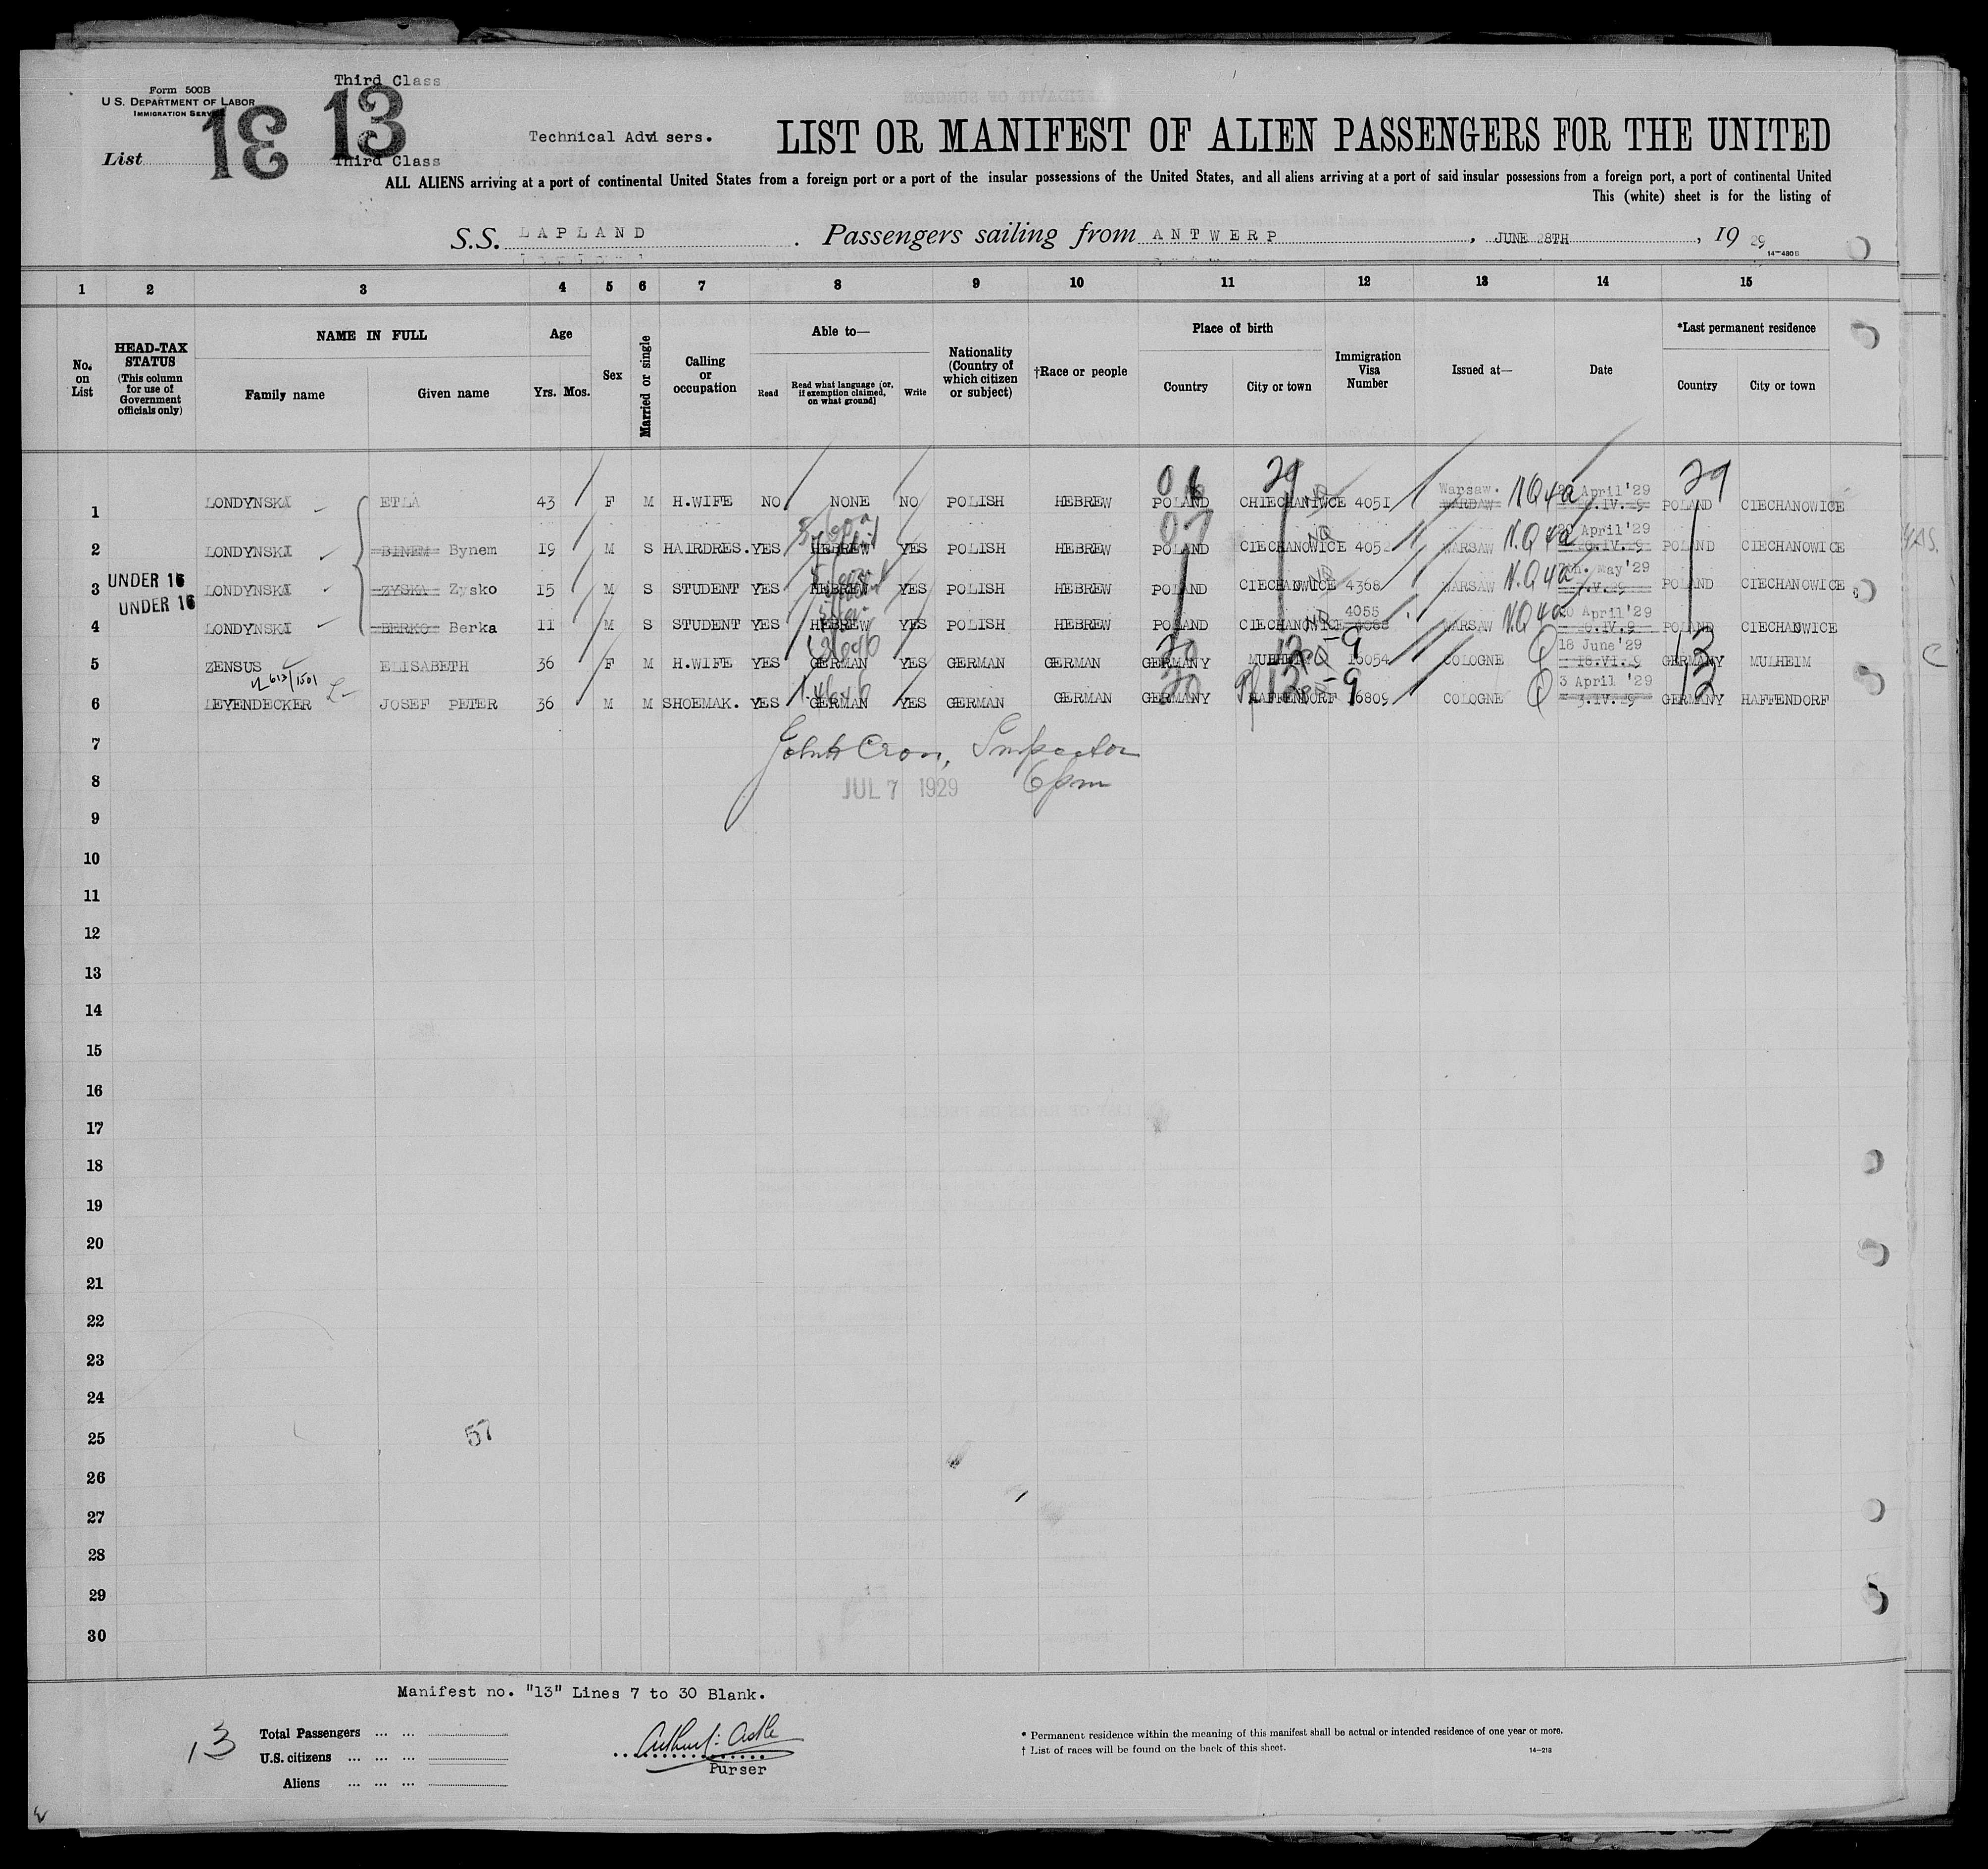 Third Class
Form 500B
U. S. DEPARTMENT OF LABOR
IMMIGRATION SERVICE
13 13
Technical Advisers.
LIST OR MANIFEST OF ALIEN PASSENGERS FOR THE UNITED
List
Third Class
ALL ALIENS arriving at a port of continental United States from a foreign port or a port of the insular possessions of the United States, and all aliens arriving at a port of said insular possessions from a foreign port, a port of continental United
This (white) sheet is for the listing of
S.S. LAPLAND. Passengers sailing from ANTWERP, JUNE 28TH, 19 29
14-480 B
1 2 3 4 5 6 7 8 9 10 11 12 13 14 15
No. on List
HEAD-TAX STATUS (This column for use of Government officials only)
NAME IN FULL
Family name Given name
Age
Yrs. Mos.
Sex
Married or single
Calling or occupation
Able to—
Read Read what language [or, if exemption claimed, on what ground] Write
Nationality (Country of which citizen or subject)
†Race or people
Place of birth
Country City or town
Immigration Visa Number
Issued at—
Date
*Last permanent residence
Country City or town
06 29 29
1 LONDYNSKA ETLA 43 F M H.WIFE NO NONE NO POLISH HEBREW POLAND CHIECHANIWCE 4051 Warsaw. WARSAW N.Q4a April '29 POLAND CIECHANOWICE
07
2 LONDYNSKI BINEM Bynem 19 M S HAIRDRES. YES HEBREW YES POLISH HEBREW POLAND CIECHANOWICE 4052 WARSAW N.Q4a 20 April '29 POLAND CIECHANOWICE
UNDER 16
3 LONDYNSKI ZYSKA Zysko 15 M S STUDENT YES HEBREW YES POLISH HEBREW POLAND CIECHANOWICE 4368 WARSAW N.Q4a May '29 POLAND CIECHANOWICE
UNDER 16
4 LONDYNSKI BERKO Berka 11 M S STUDENT YES HEBREW YES POLISH HEBREW POLAND CIECHANOWICE 4055 WARSAW N.Q4a 20 April '29 POLAND CIECHANOWICE
5 ZENSUS ELISABETH 36 F M H.WIFE YES GERMAN YES GERMAN GERMAN GERMANY MULHEIM 16054 COLOGNE 18 June '29 GERMANY MULHEIM
613/1501
6 LEYENDECKER JOSEF PETER 36 M M SHOEMAK. YES GERMAN YES GERMAN GERMAN GERMANY HAFFENDORF 16809 COLOGNE 3 April '29 GERMANY HAFFENDORF
7 John Cron, Inspector
8 JUL 7 1929 6 pm
9
10
11
12
13
14
15
16
17
18
19
20
21
22
23
24
25 57
26
27
28
29
30
Manifest no. "13" Lines 7 to 30 Blank.
13
Total Passengers ... ...
U.S. citizens ... ... ...
Aliens ... ... ...
Purser
* Permanent residence within the meaning of this manifest shall be actual or intended residence of one year or more.
† List of races will be found on the back of this sheet.
14-213